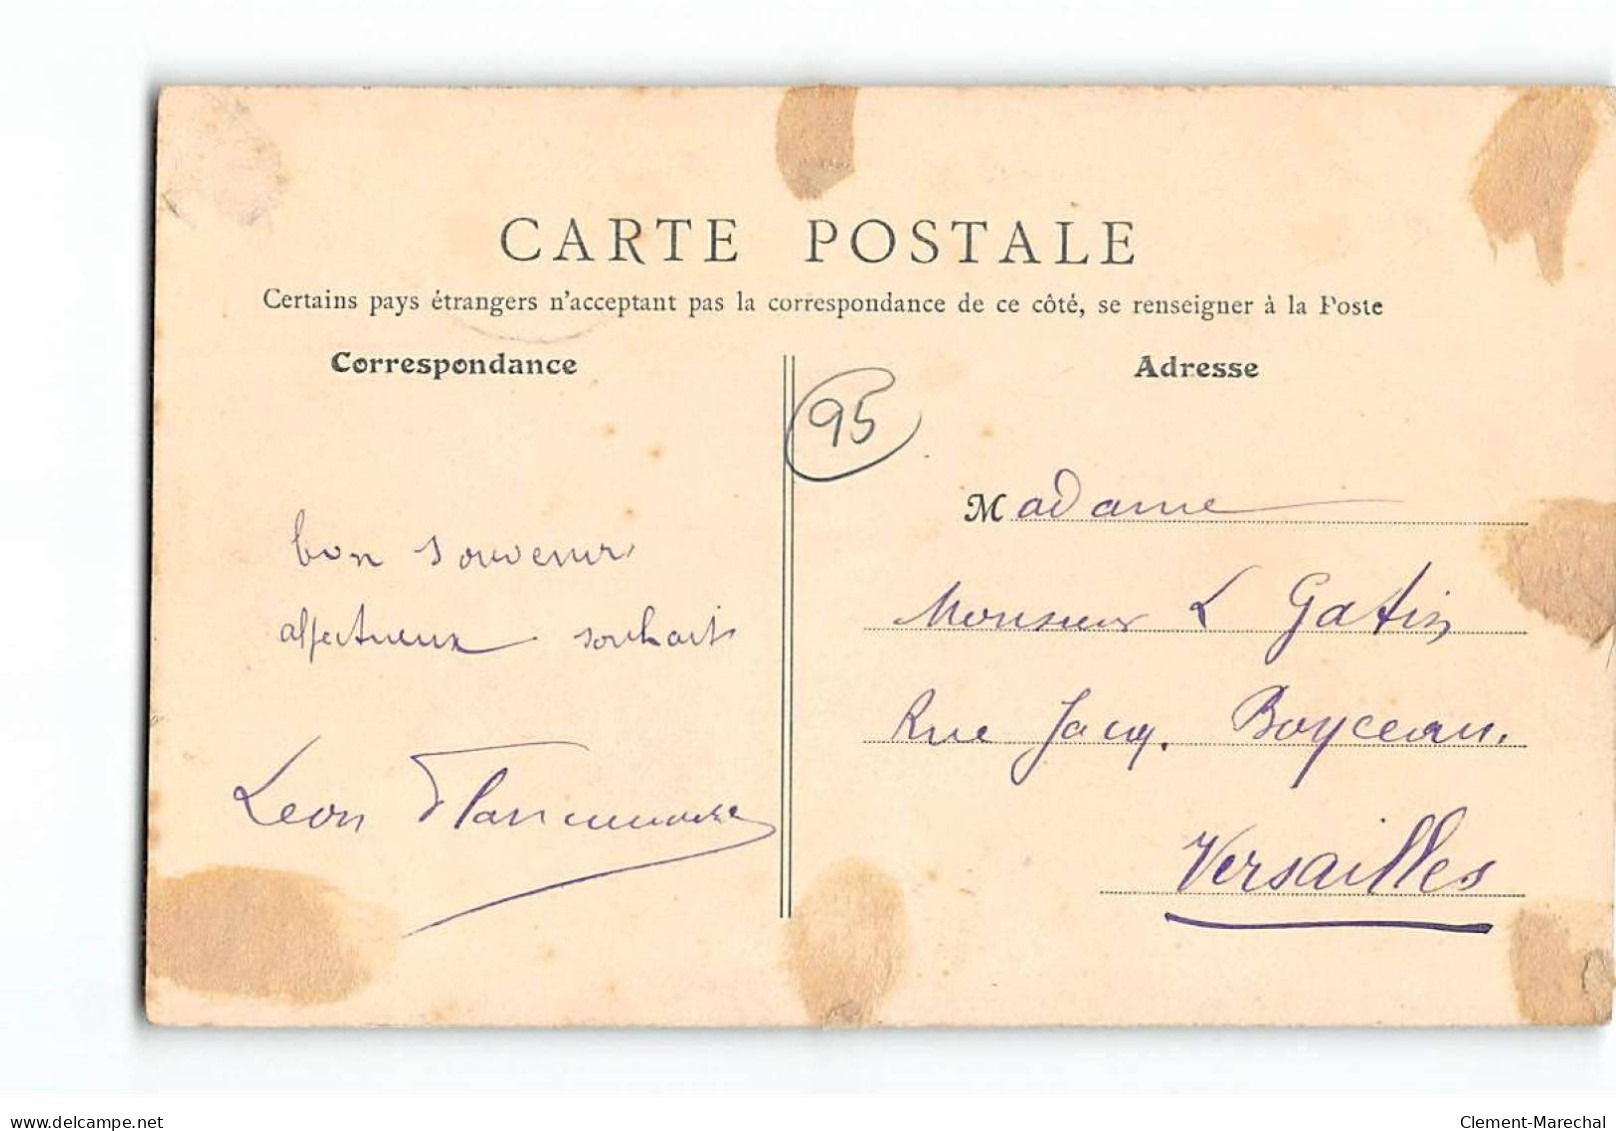 CARTE POSTALE
Certains pays étrangers n'acceptant pas la correspondance de ce côté, se renseigner à la Poste
Correspondance
Adresse
95
bon souvenir
affectueux souhaits
Léon
Madame
Monsieur L Gatin
Rue Jacq. Boyceau.
Versailles
www.delcampe.net
Clement-Marechal